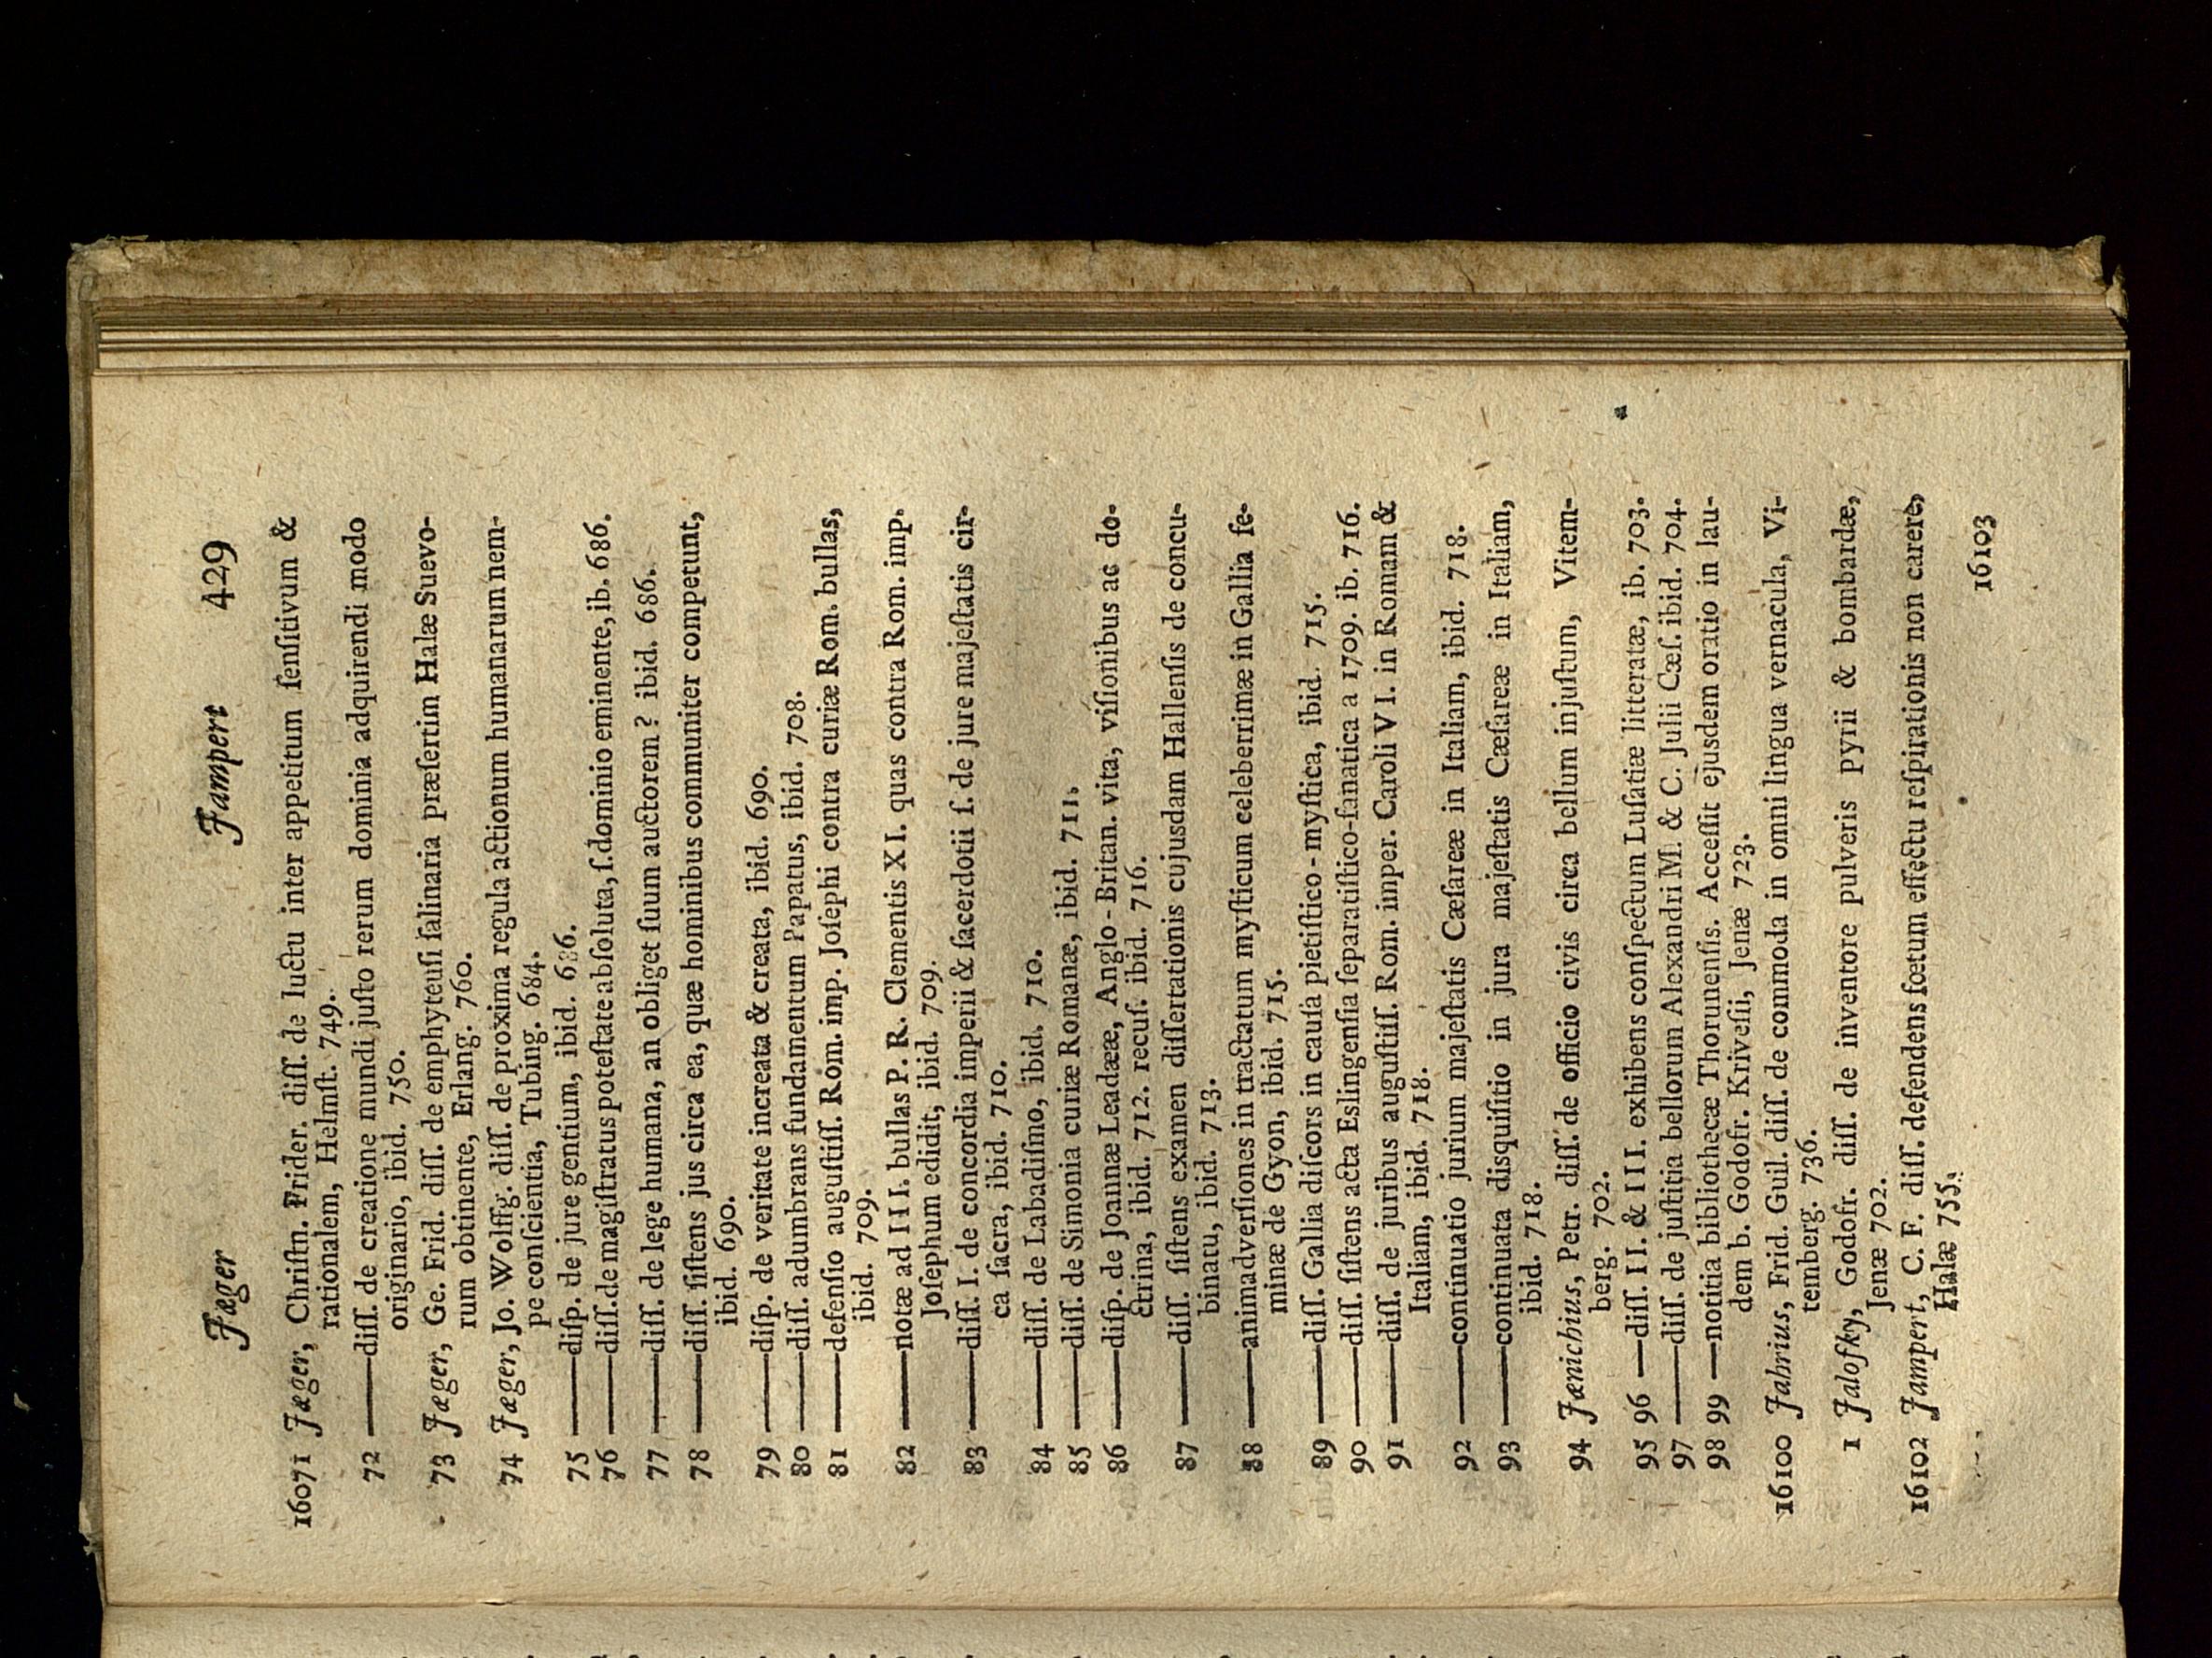 Jæger Jampert 429
16071 Jæger, Chriſtn. Frider. diſſ. de luctu inter appetitum ſenſitivum &
rationalem, Helmſt. 749.
72 —— diſſ. de creatione mundi juſto rerum dominia adquirendi modo
originario, ibid. 750.
73 Jæger, Ge. Frid. diſſ. de emphyteuſi ſalinaria præſertim Halæ Suevo-
rum obtinente, Erlang. 760.
74 Jæger, Jo. Wolffg. diſſ. de proxima regula actionum humanarum nem-
pe conſcientia, Tubing. 684.
75 —— diſp. de jure gentium, ibid. 686.
76 —— diſſ. de magiſtratus poteſtate abſoluta, ſ. dominio eminente, ib. 686.
77 —— diſſ. de lege humana, an obliget ſuum auctorem? ibid. 686.
78 —— diſſ. ſiſtens jus circa ea, quæ hominibus communiter competunt,
ibid. 690.
79 —— diſp. de veritate increata & creata, ibid. 690.
80 —— diſſ. adumbrans fundamentum Papatus, ibid. 708.
81 —— defenſio auguſtiſſ. Rom. imp. Joſephi contra curiæ Rom. bullas,
ibid. 709.
82 —— notæ ad III. bullas P. R. Clementis XI. quas contra Rom. imp.
Joſephum edidit, ibid. 709.
83 —— diſſ. I. de concordia imperii & ſacerdotii ſ. de jure majeſtatis cir-
ca ſacra, ibid. 710.
84 —— diſſ. de Labadiſmo, ibid. 710.
85 —— diſſ. de Simonia curiæ Romanæ, ibid. 711.
86 —— diſp. de Joannæ Leadææ, Anglo-Britan. vita, viſionibus ac do-
ctrina, ibid. 712. recuſ. ibid. 716.
87 —— diſſ. ſiſtens examen diſſertationis cujusdam Hallenſis de concu-
binatu, ibid. 713.
88 —— animadverſiones in tractatum myſticum celeberrimæ in Gallia fe-
minæ de Gyon, ibid. 715.
89 —— diſſ. Gallia diſcors in cauſa pietiſtico-myſtica, ibid. 715.
90 —— diſſ. ſiſtens acta Eslingenſia ſeparatiſtico-fanatica a 1709. ib. 716.
91 —— diſſ. de juribus auguſtiſſ. Rom. imper. Caroli VI. in Romam &
Italiam, ibid. 718.
92 —— continuatio jurium majeſtatis Cæſareæ in Italiam, ibid. 718.
93 —— continuata disquiſitio in jura majeſtatis Cæſareæ in Italiam,
ibid. 718.
94 Jænichius, Petr. diſſ. de officio civis circa bellum injuſtum, Vitem-
berg. 702.
95 96 —— diſſ. II. & III. exhibens conſpectum Luſatiæ litteratæ, ib. 703.
97 —— diſſ. de juſtitia bellorum Alexandri M. & C. Julii Cæſ. ibid. 704.
98 99 —— notitia bibliothecæ Thorunenſis. Acceſſit ejusdem oratio in lau-
dem b. Godofr. Kriveſii, Jenæ 723.
16100 Jahrius, Frid. Guil. diſſ. de commoda in omni lingua vernacula, Vi-
temberg. 736.
1 Jalofky, Godofr. diſſ. de inventore pulveris pyrii & bombardæ,
Jenæ 702.
16102 Jampert, C. F. diſſ. defendens fœtum effectu reſpirationis non carere,
Halæ 755.
16103